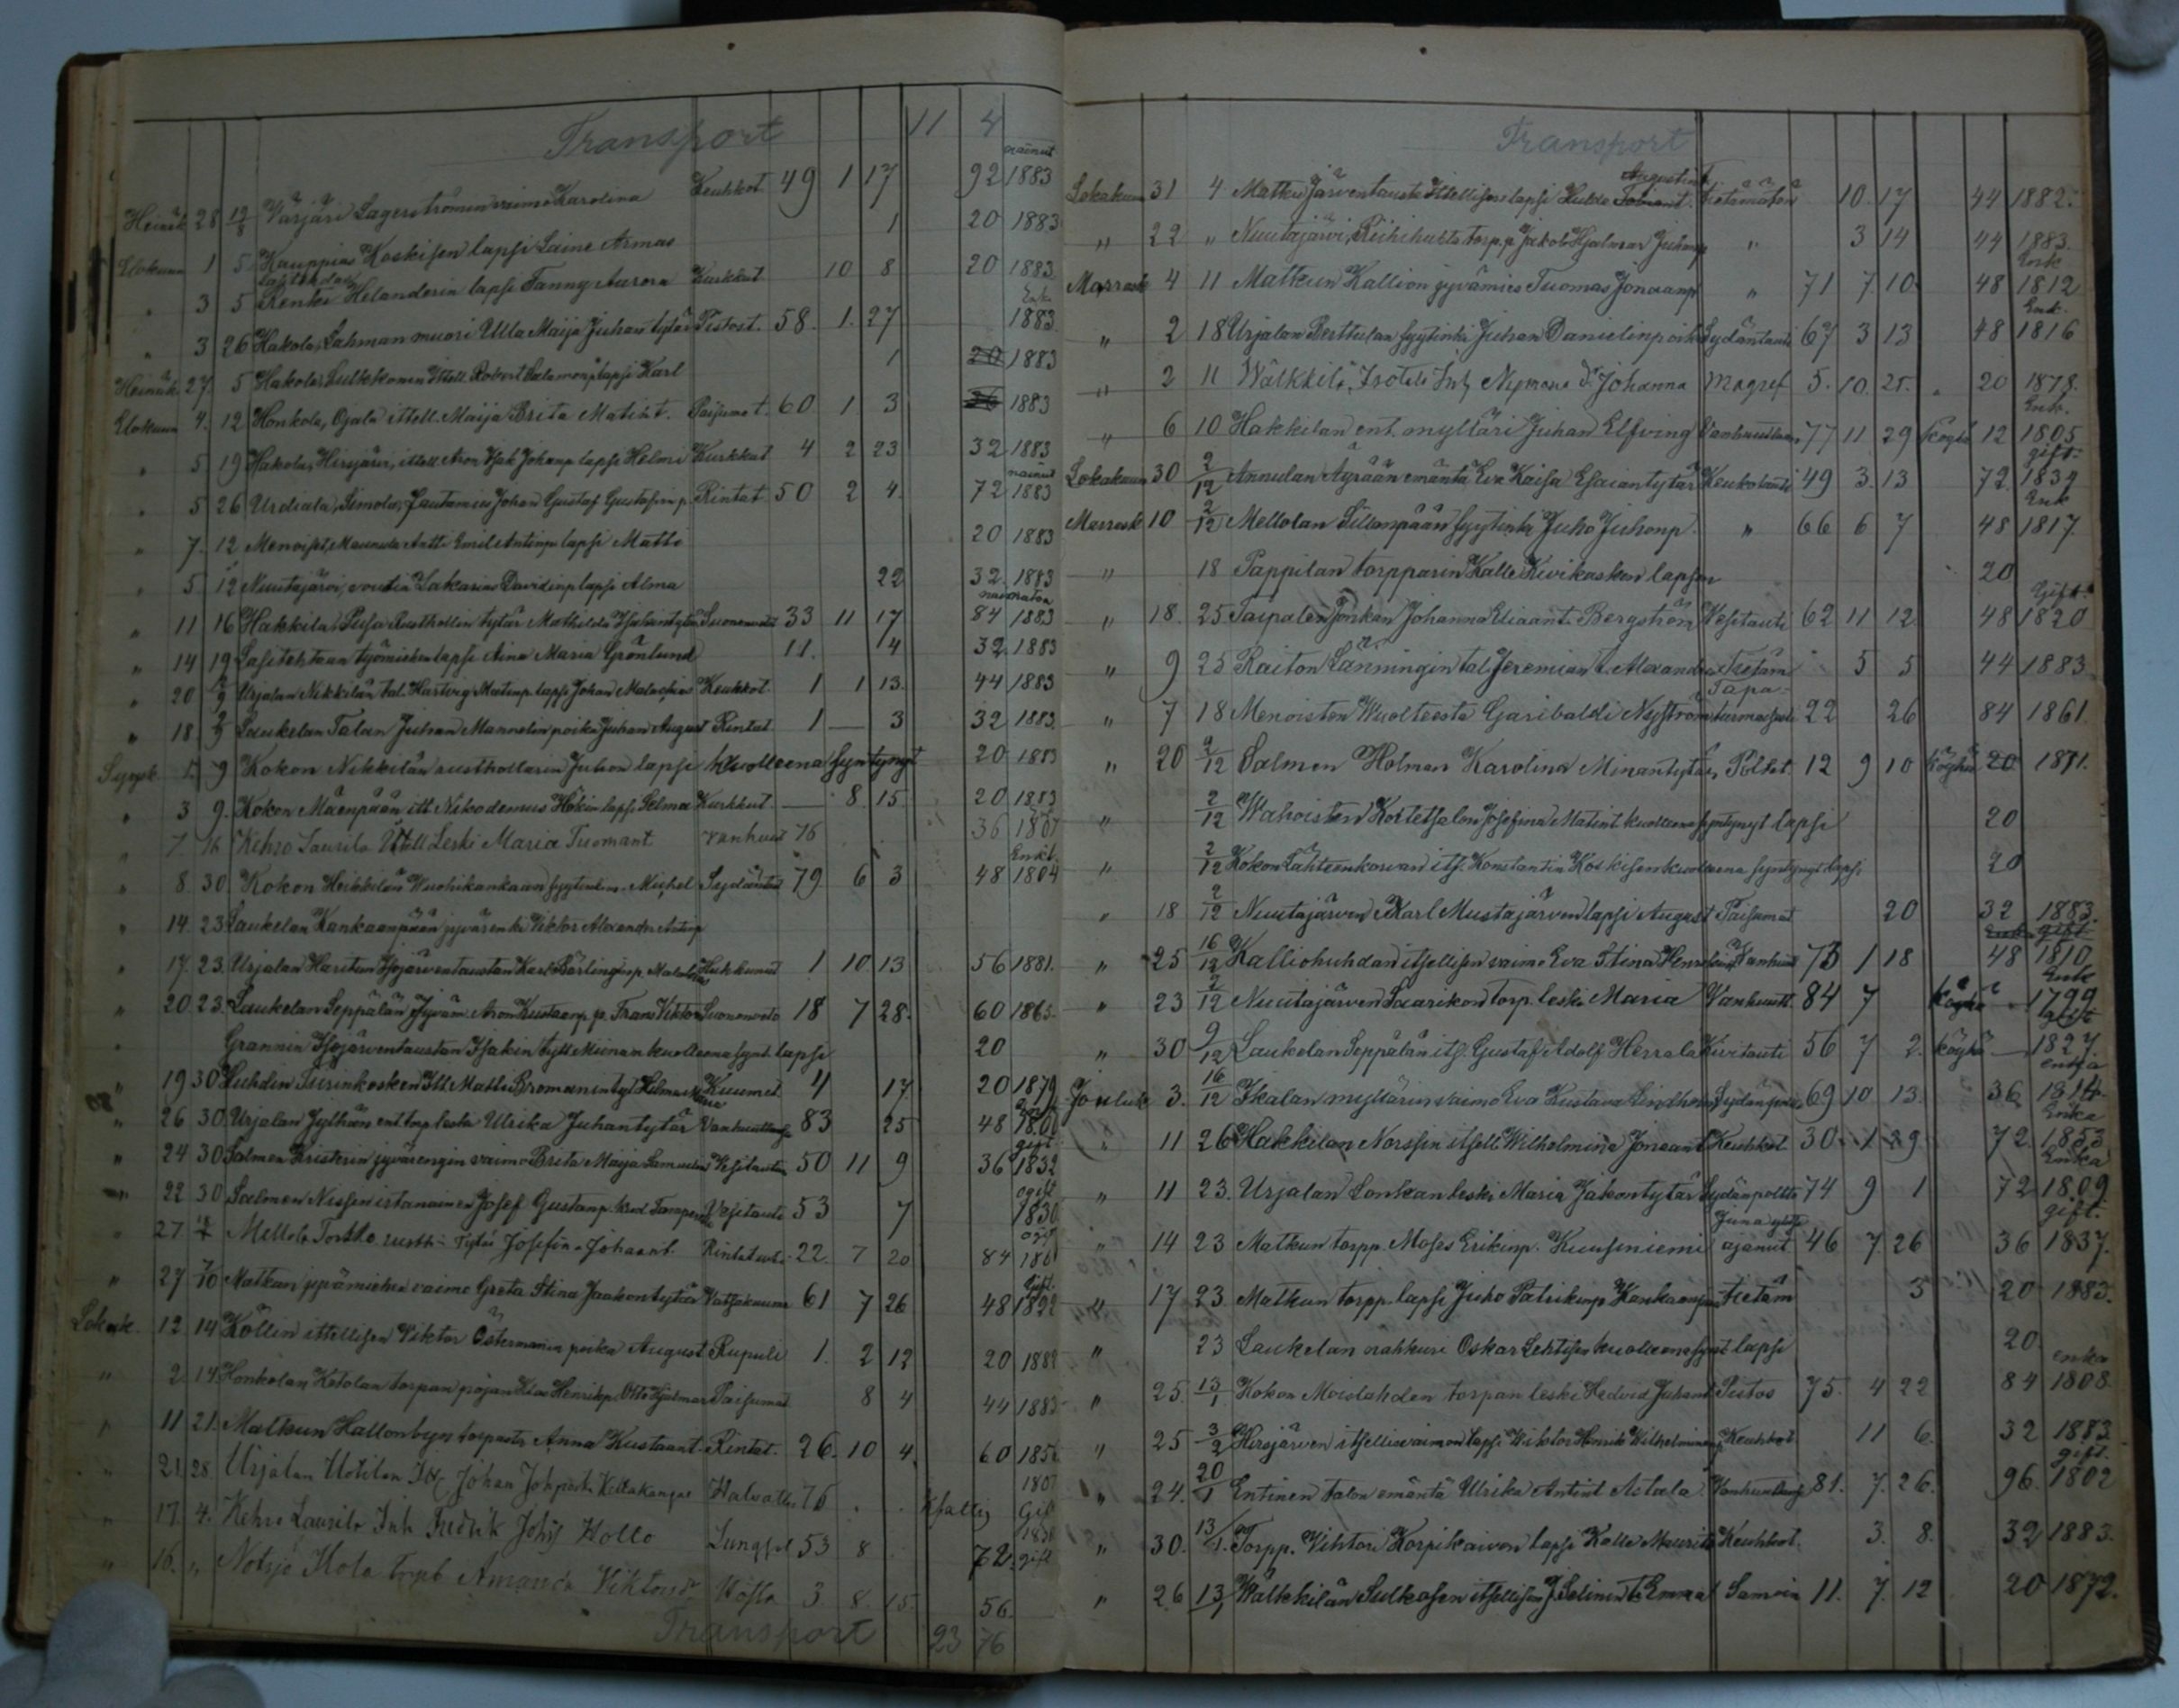 Transport 11 4
nainut
Heinäk 28 12/8 Värjäri Lagerströmin vaimo Karolina Keuhkot 49 1 17 92 1883
Elokuun 1 5 Kauppias Koskisen lapsi Laine Armas 1 20 1883
" 3 5 Renki Helanderin lapsi Fanny Aurora Kurkkut 10 8 20 1883
Enk.
" 3 26 Hakola, Lahman muori Ulla Maija Juhantytär 58 1 27 1883
Heinäk 27 5 Hakola, Sulkkonen Ittell. Robert Salomonp lapsi Karl 1 20 1883
Elokuun 4 12 Honkola, Ojala ittell. Maija Brita Matint. Paijumot 60 1 3 1883
" 5 19 Hakola, Hirsjärvi, ittell Aron Isak Johanp lapsi Helmi Kurkkut 4 2 23 32 1883
nainut
" 5 26 Urdiala, Simola, Lautamies Johan Gustaf Gustafinp. Rintat. 50 2 4 72 1883
" 7 12 Menoist, Maunula Antti Emil Antinp lapsi Matti 20 1883
" 5 12 Nuutajärvi, voutin Sakarias Davidinp lapsi Alma 22 32 1883
naimaton
" 11 16 Hakkila, Pusa Rusthollin tytär Mathilda Suonenveto 33 11 17 84 1883
" 14 19 Lasitehtaan työmiehen lapsi Aina Maria Grönlund 11 4 32 1883
" 20 2/9 Urjalan Nikkilän tal. Hartvig Matinp. lapsi Johan Malachias Keuhkot 1 1 13 44 1883
" 18 2/9 Laukelan Talan Juhan Mannelin poika Juhan August Rintat. 1 — 3 32 1883
Syysk. 1 9 Kokon Nikkilän rusthollarin Juhon lapsi kuolleena syntynyt 20 1883
" 3 9 Kokon Mäenpään itt. Nikodemus Hökin lapsi Selma Kurkkut — 8 15 20 1883
" 7 16 Kehro Laurila Ittell Leski Maria Tuomant. Vanhuus 76 36 1807
Enkl.
" 8 30 Kokon Heikkilän Wuohikankaan syytinkim. Michel Sydäntaut 79 6 3 48 1804
" 14 23 Laukelan Kankaanpään jyvärenki Viktor Alexander Antinp
" 17 23 Urjalan Haritun Isojärventaustan Karl Bärlingin p. Hukkunut 1 10 13 56 1881
" 20 23 Laukelan Seppälän Jyväm. Aron Kustaanp. p. Frans Viktor Suonenveto 18 7 28 60 1865
" Grannin Isojärventaustan Isakin tytt Miinan kuolleena synt. lapsi 20
" 19 30 Huhdin Suurinkosken Itt Matti Bromanin tyt Helma Maria Kuumet 4 17 20 1879
" 26 30 Urjalan Jylhän ent. torp. leski Ulrika Juhantytär Vanhuuttansa 83 25 48 1800
gift
" 24 30 Salmen Kristerin jyvärengin vaimo Brita Maija Samuelint Vesitautiin 50 11 9 36 1832
ogift
" 22 30 Salmen Nissin istonainen Josef Gustanp. Vesitauti 53 7 1830
ogif
" 27 Mellola Torkko rustti. Tytär Josefina Johant. Rintataudi 22 7 20 84 1861
gift
" 27 7/10 Matkun jyvämiehen vaimo Greta Stina Jaakontytär Vatsakuume 61 7 26 48 1822
Lokak. 12 14 Köllin ittellisen Viktor Östermanin poika August Rupuli 1 2 12 20 1882
" 2 14 Honkolan Ketolan torpan pojan Kias Henrikp. Otto Hjalmar Paisumat 8 4 44 1883
" 11 21 Matkun Hallonbyn torpasta Anna Kustaant Rintat. 26 10 4 60 1856
1807
" 21 28 Urjalan Uotilan Itt. Johan Johanp Killakangas Halvatt. 76 Kfattig Gift
1830
" 17 4 Kehro Laurila Inh Fredrik Johs Hollo Lungsot 53 8 72 gift
" 16 " Notsjö Kola torp b Amanda Viktorsd 3 8 15 56
Transport 23 76
Transport
Augustint
Lokakuun 31 4 Matku Järventausta Ittellisen lapsi Hulda Tietämätön 10 17 44 1882
" 22 " Nuutajärvi, Riihihuhta torp. p. Jakob Hjalmar Juhanp " 3 14 44 1883
Enk
Marrask 4 11 Matkun Kallion jyvämies Tuomas Jonaanp " 71 7 10 48 1812
Enk.
" 2 18 Urjalan Perttulan syytinki Juhan Danielinpoika Sydäntauti 67 3 13 48 1816
" 2 11 Wälkkilä, Isotalo Inh. Nymans dr Johanna Magref 5 10 25 20 1878
Enk.
" 6 10 Hakkilan ent. mylläri Juhan Elfving Vanhuuttaan 77 11 29 Köyhä 12 1805
gift.
Lokakuun 30 2/12 Annulan Äyrään emäntä Eva Kaisa Esaiantytär Keuhkotauti 49 3 13 72 1834
Enk
Marrask 10 2/12 Mellolan Sillanpään syytinki Juho Juhonp. " 66 6 7 48 1817
" 18 Pappilan torpparin Kalle Kivikosken lapsen 20
Gift.
" 18 25 Taipalen Jonkan Johanna Eliaant. Bergström Vesitauti 62 11 12 48 1820
" 9 25 Raiton Länningin tal Jeremian t. Alexandra Tietäm 5 5 44 1883
Tapa-
" 7 18 Menoisten Wuolteesta Garibaldi Nyström turmasesti 22 26 84 1861
" 20 2/12 Salmen Holman Karolina Minantytär, Poltet 12 9 10 Köyhä 20 1871
" 2/12 Wahoisten Kortetsalon Josefina Matint kuolleena syntynyt lapsi 20
" 2/12 Kokon Lähteenkorvan its. Konstantin Koskisen kuolleena syntynyt lapsi 20
" 18 2/12 Nuutajärven Karl Mustajärven lapsi August Paisumat 20 32 1883
" 25 16/12 Kalliohuhdan itsellisen vaimo Eva Stina Henrikint Vanhuut 73 1 18 48 1810
Enk
" 23 2/12 Nuutajärven Saarikon torp. leski Maria Vanhuutt 84 7 Köyhä 1799
gift
" 30 9/12 Laukelan Seppälän its. Gustaf Adolf Herrala Kivitauti 56 7 2 köyhä — 1827
enka
Jouluk 3 16/12 Ikalan myllärin vaimo Eva Kustava Lindholm Sydänpolt 69 10 13 36 1814
Enka
" 11 26 Hakkilan Norssin itsell. Wilhelmina Jonaant Keuhkot 30 1 29 72 1853
Enka
" 11 23 Urjalan Lonkan leski Maria Jakontytär Sydänpoltto 74 9 1 72 1809
Juna ylitse gift.
" 14 23 Matkun torpp. Moses Erikinp. Kuusiniemi ajanut 46 7 26 36 1837
" 17 23 Matkun torpp. lapsi Juho Patrikinp Kankaanpää tietäm 3 20 1883
" 23 Laukelan nahkuri Oskar Lehtisen kuolleena synt lapsi 20
enka
" 25 13/1 Kokon Moislahden torpan leski Hedvid Juhant Pistos 75 4 22 84 1808
" 25 3/2 Hirsjärven itsellisvaimon lapsi Wiktor Henrik Wilhelminanp Keuhkot 11 6 32 1883
gift.
" 24 20/1 Entinen talon emäntä Ulrika Antint Astala Vanhuuttansa 81 7 26 96 1802
" 30 13/1 Torpp. Vihtori Korpikaivon lapsi Kalle Maurits Keuhkot 3 8 32 1883
" 26 13/1 Wälkkilän Sulkosen itsellisen J. Selinin t. Emma 11 7 12 20 1872